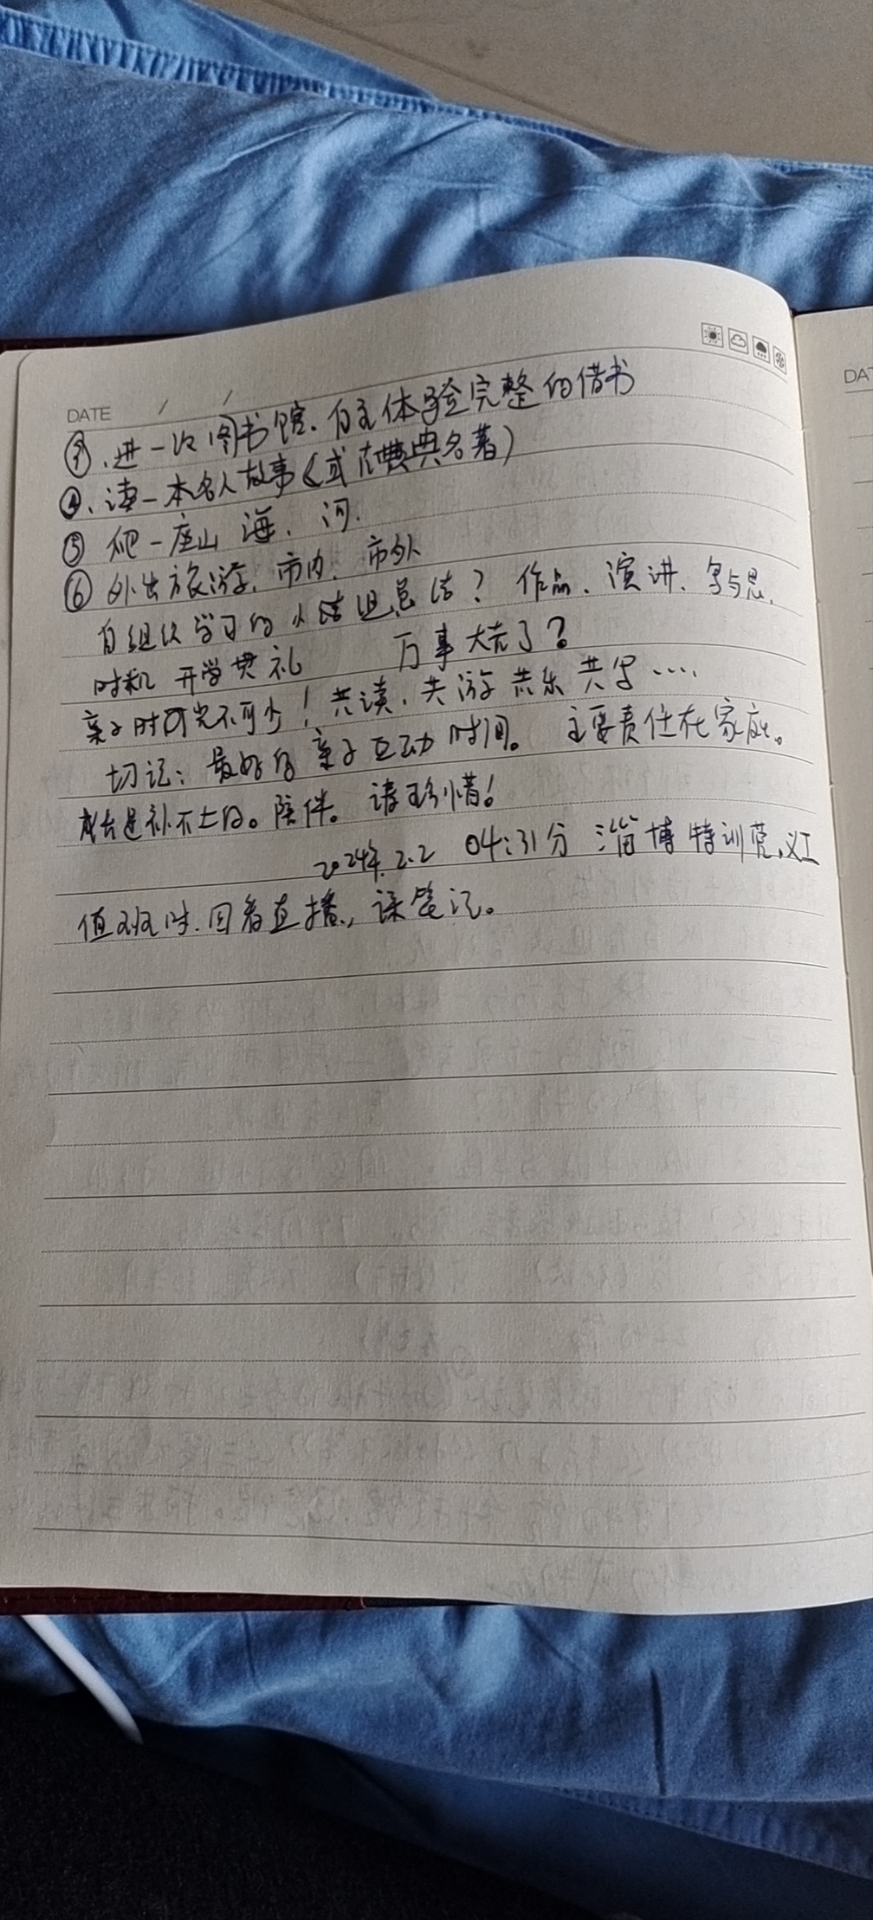 DATE / /
③.进一次图书馆.自主体验完整的借书
④、读一本名人故事(或古典名著)
⑤ 爬一座山 海、河.
⑥ 外出旅游.市内、市外
自组织学习的小结组总结? 作品、演讲、写与思.
时机 开学典礼 万事大吉了?
亲子时光不可少!共读、共游 共乐 共写····
切记:最好的亲子互动时间。 主要责任在家庭。
成长是补不上的。陪伴。请珍惜!
2024年.2.2 04:31分 淄博特训营.义工
值班时.回看直播,课笔记。
DAT